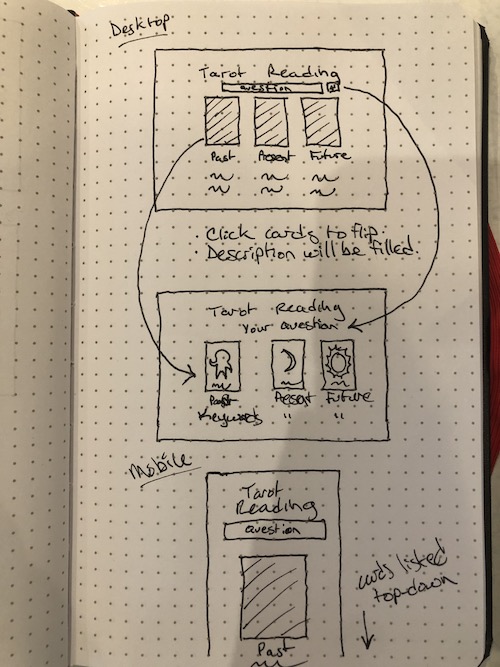 Desktop
Tarot Reading
question
Past Present Future
· Click cards to flip.
· Description will be filled.
Tarot Reading
"Your question"
Past Present Future
Keywords " "
Mobile
Tarot
Reading
question
cards listed
top-down
Past